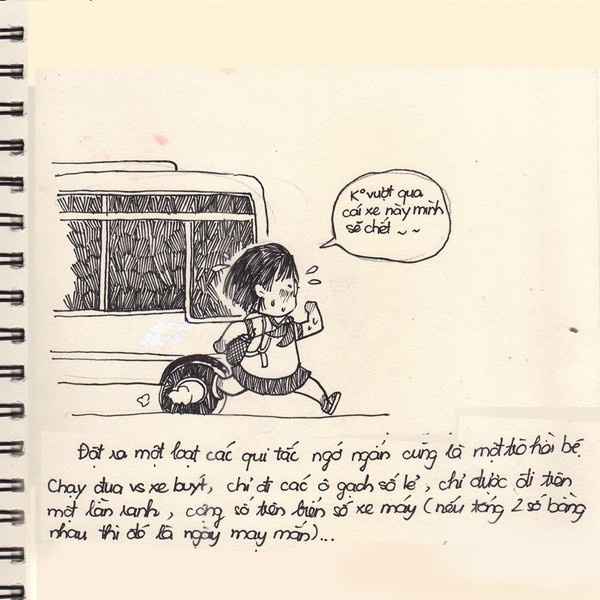 K° vượt qua
cái xe này mình
sẽ chết ~ ~
Đặt ra một loạt các qui tắc ngớ ngẩn cũng là một trò hồi bé.
Chạy đua vs xe buýt, chỉ đi các ô gạch số lẻ, chỉ được đi trên
một lằn ranh, cộng số trên biển số xe máy (nếu tổng 2 số bằng
nhau thì đó là ngày may mắn)...